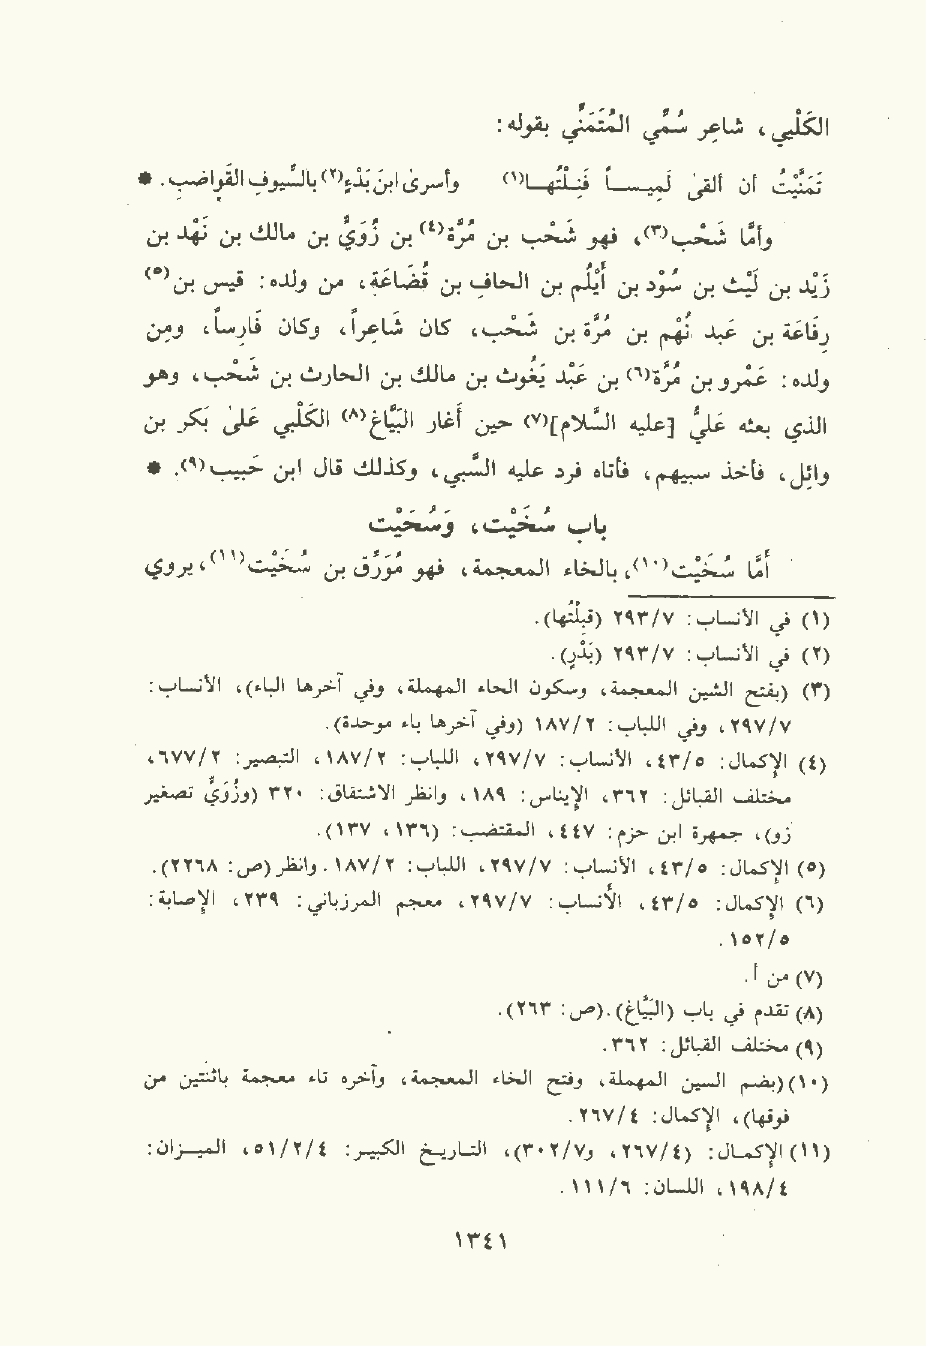 الكَلْبِي، شاعِر سُمِّي المُتَمَنِّي بقوله:
تَمَنَّيْتُ أن ألقىٰ لَمِيـســاً فَنِـلْتُهـا(١) وأسرىٰ ابنَ بَدْءٍ(٢) بالسُّيوفِ القَواضِب. *
وأمّا شَحْب(٣)، فهو شَحْب بن مُرَّة(٤) بن زُوَيّ بن مالك بن نَهْد بن
زَيْد بن لَيْث بن سُوْد بن أَيْلُم بن الحافِ بن قُضَاعَة، من ولده: قيس بن(٥)
رِفَاعَة بن عَبْد نُهْم بن مُرَّة بن شَحْب، كان شَاعِراً، وكان فَارِساً، ومِن
ولده: عَمْرو بن مُرَّة(٦) بن عَبْد يَغُوث بن مالك بن الحارث بن شَحْب، وهو
الذي بعثه عَليٌّ [عليه السَّلام](٧) حين أغار البَيَّاغ(٨) الكَلْبي عَلىٰ بَكر بن
وائِل، فأخذ سبيهم، فأتاه فرد عليه السَّبي، وكذلك قال ابن حَبيب(٩). *
باب سُخَيْت، وَسُحَيْت
أَمَّا سُخَيْت(١٠)، بالخاء المعجمة، فهو مُوَرِّق بن سُخَيْت(١١)، يروي
(١) في الأنساب: ٢٩٣/٧ (قبلتُها).
(٢) في الأنساب: ٢٩٣/٧ (بَدْرٍ).
(٣) (بفتح الشين المعجمة، وسكون الحاء المهملة، وفي آخرها الباء)، الأنساب:
٢٩٧/٧، وفي اللباب: ١٨٧/٢ (وفي آخرها باء موحدة).
(٤) الإكمال: ٤٣/٥، الأنساب: ٢٩٧/٧، اللباب: ١٨٧/٢، التبصير: ٦٧٧/٢،
مختلف القبائل: ٣٦٢، الإيناس: ١٨٩، وانظر الاشتقاق: ٣٢٠ (وزُوَيّ تصغير
زو)، جمهرة ابن حزم: ٤٤٧، المقتضب: (١٣٦، ١٣٧).
(٥) الإكمال: ٤٣/٥، الأنساب: ٢٩٧/٧، اللباب: ١٨٧/٢. وانظر(ص: ٢٢٦٨).
(٦) الإكمال: ٤٣/٥، الأنساب: ٢٩٧/٧، معجم المرزباني: ٢٣٩، الإصابة:
١٥٢/٥.
(٧) من أ.
(٨) تقدم في باب (البَيَّاغ).(ص: ٢٦٣).
(٩) مختلف القبائل: ٣٦٢.
(١٠)(بضم السين المهملة، وفتح الخاء المعجمة، وآخره تاء معجمة باثنتين من
فوقها)، الإكمال: ٢٦٧/٤.
(١١) الإكمـال: (٢٦٧/٤، و٣٠٢/٧)، التاريخ الكبير: ٥١/٢/٤، الميـزان:
١٩٨/٤، اللسان: ١١١/٦.
١٣٤١